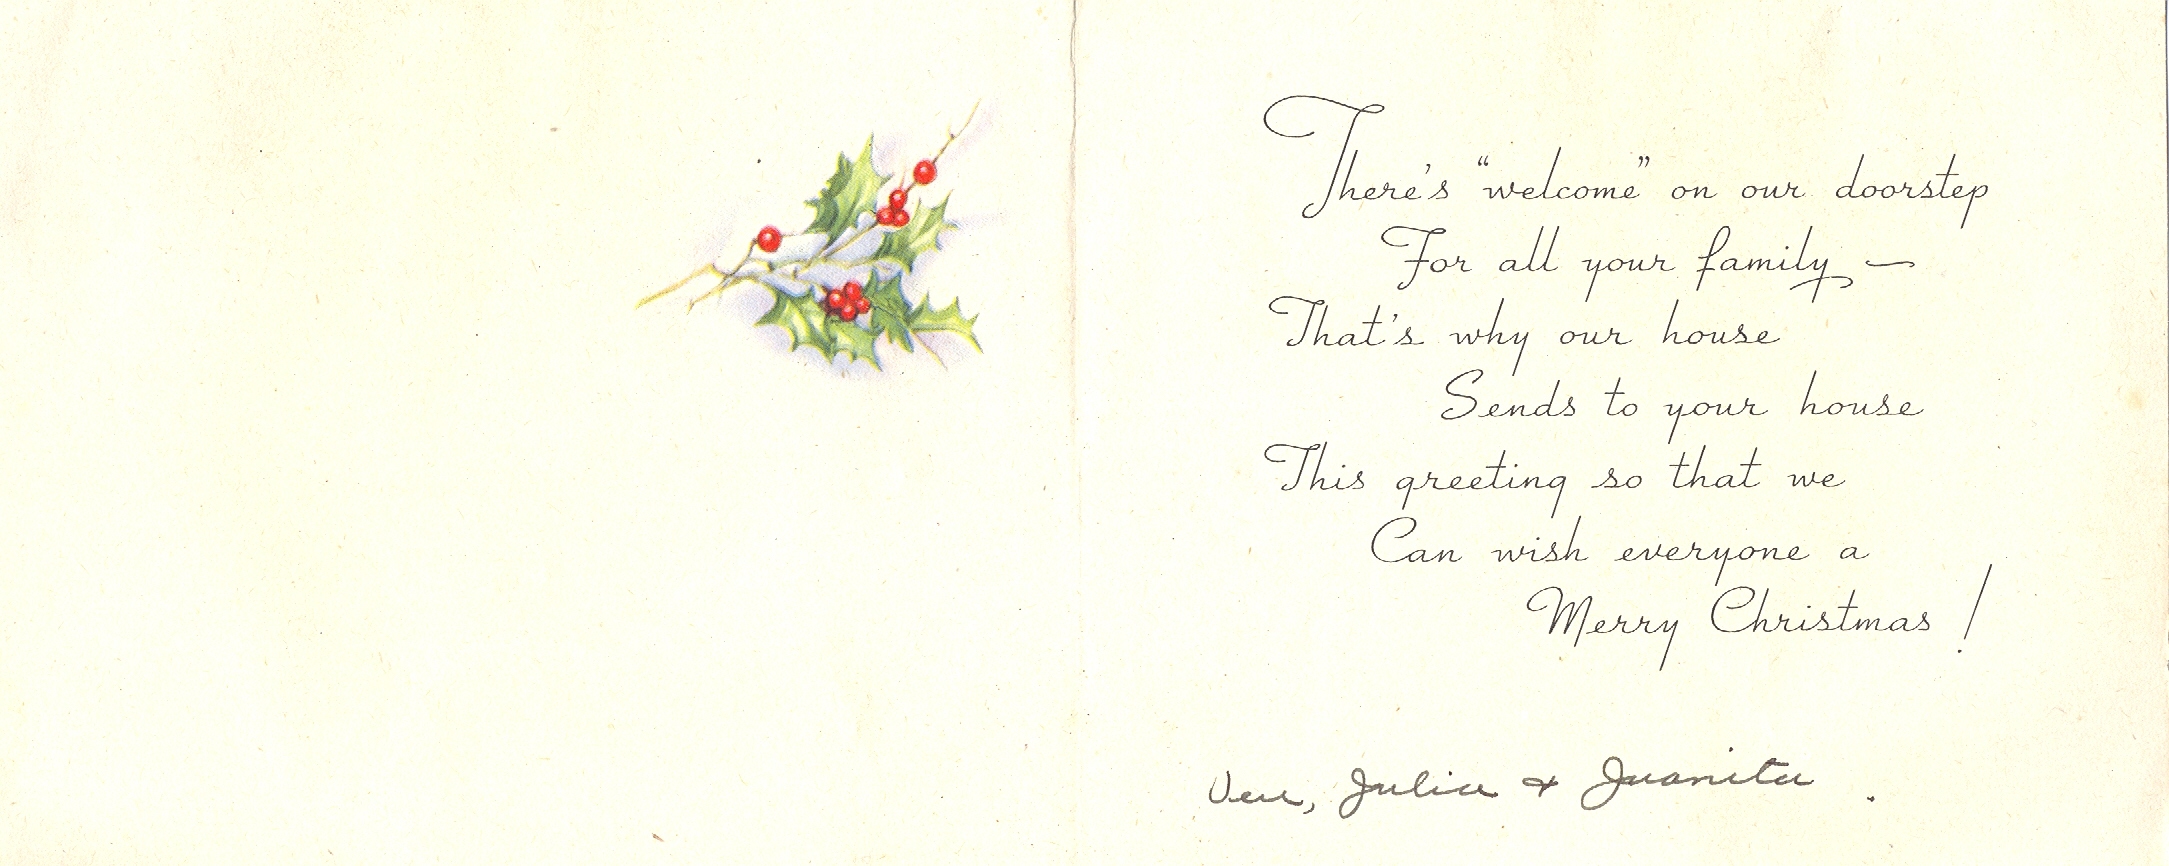 There's "welcome" on our doorstep
For all your family —
That's why our house
Sends to your house
This greeting so that we
Can wish everyone a
Merry Christmas!
Julia & Juanita